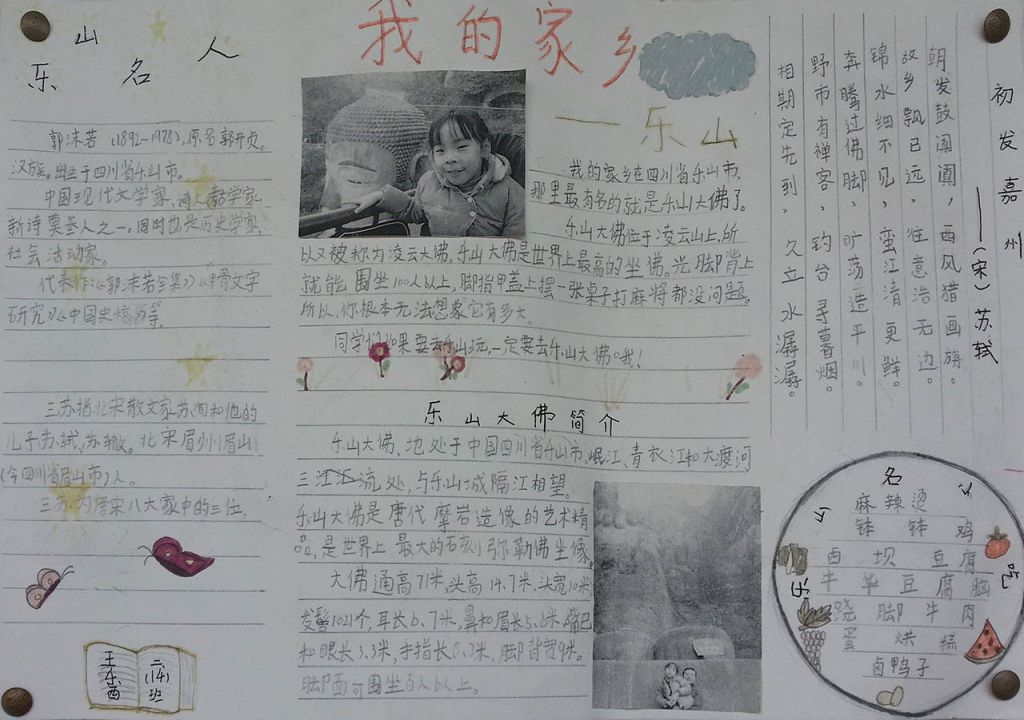 我的家乡
——乐山
乐山名人
郭沫若(1892-1978),原名郭开贞。
汉族。出生于四川省乐山市。
中国现代文学家、诗人、剧学家、
新诗奠基人之一,同时也是历史学家、
社会活动家。
代表作:《郭沫若全集》《甲骨文字
研究》《中国史稿》等。
三苏指北宋散文家苏洵和他的
儿子苏轼、苏辙。北宋眉州眉山
(今四川省眉山市)人。
三苏为唐宋八大家中的三位。
二(14)
班
我的家乡在四川省乐山市,
那里最有名的就是乐山大佛了。
乐山大佛位于凌云山上,所
以又被称为凌云大佛。乐山大佛是世界上最高的坐佛。光脚背上
就能围坐100人以上,脚指甲盖上摆一张桌子打麻将都没问题。
所以,你根本无法想象它有多大。
同学们如果要去乐山玩,一定要去乐山大佛哦!
乐山大佛简介
乐山大佛,地处于中国四川省乐山市,岷江、青衣江和大渡河
三江汇流处,与乐山城隔江相望。
乐山大佛是唐代摩岩造像的艺术精
品,是世界上最大的石刻弥勒佛坐像。
大佛通高71米,头高14.7米,头宽10米,
发髻1021个,耳长6.7米,鼻和眉长5.6米,嘴巴
和眼长3.3米,手指长8.3米,脚背宽9米。
脚面可围坐百人以上。
初发嘉州
——(宋)苏轼
朝发鼓阗阗,西风猎画旗。
故乡飘已远,往意浩无边。
锦水细不见,蛮江清更鲜。
奔腾过佛脚,旷荡造平川。
野市有禅客,钓台寻暮烟。
相期定先到,久立水潺潺。
乐山名小吃
麻辣烫
钵钵鸡
西坝豆腐
牛羊豆腐脑
跷脚牛肉
蛋烘糕
卤鸭子